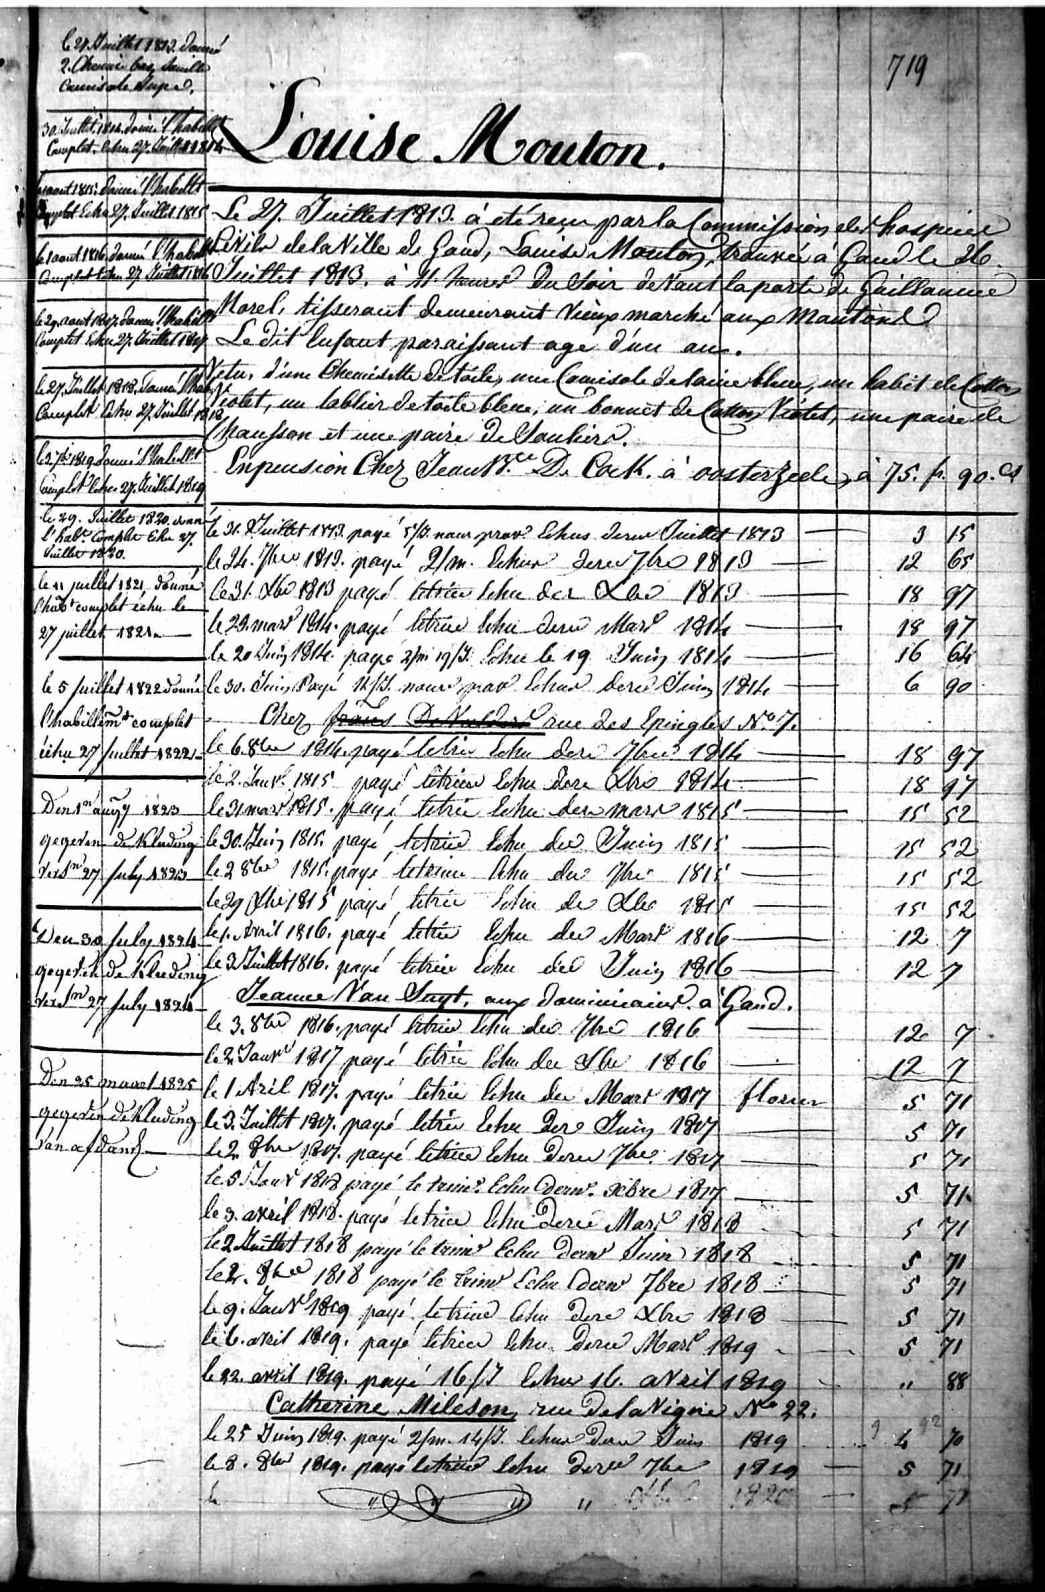 719
Louise Mouton.
le 27. Juillet 1813. donné
2. Chemises bas, Jouille
Camisole Jupe.
30 Juillet 1814. donné l'habillt
Complet. Echu 27. Juillet 1814
1 aout 1815. donné l'habillt
Complet Echu 27. Juillet 1815
le 1 aout 1816. donné l'habillt
Complet Echu 27 Juillet 1816
le 29. aout 1817. donné l'habillt
Complet Echu 27. Juillet 1817.
le 27. Juillet 1818. donné l'habt
Complet Echu 27. Juillet 1818
le 2. 7bre 1819 donné l'habillt
Complet Echu 27. Juillet 1819
le 29. Juillet 1820. donné
l'habt Complet Echu 27.
Juillet 1820.
le 11 juillet 1821 donné
l'habt complet échu le
27 juillet 1821.
le 5 Juillet 1822 donné
l'habillemt complet
échu 27 Juillet 1822.
Den 1n augy 1823
gegeven de Kleeding
versn 27 July 1823
Den 30 July 1824
gegeven de Kleeding
versn 27 July 1824
Den 25 maart 1825
gegeven de Kleeding
van afdank
Le 27. Juillet 1813. à été reçu par la Commission des hospices
Civils de la Ville de Gand, Louise Mouton, trouvée à Gand le 26.
Juillet 1813. à 11. heures du Soir devant la porte de Guillaume
Morel, tisserant demeurant Vieux marché aux Moutons
Le dit Enfant paraissant age d'un an.
Vetu, d'une Chemisette de toile, une Camisole de laine bleue, un habit de Cotton
Violet, un tablier de toile bleue, un bonnet de Cotton Violet, une paire de
Chausson et une paire de Souliers.
En pension Chez Jean Bte De Cock. à oosterzeele, à 75. fr. 90. cs
le 31. Juillet 1813. payé 5/J. nour prov. Echus dern Juillet 1813 3 15
le 24. 7bre 1813. payé 2/m. Echus dern 7bre 1813 12 65
le 31. Xbre 1813 payé letrim Echu der Xbre 1813 18 97
le 23. mars 1814. payé letrim Echu dern Mars 1814 18 97
le 20 Juin 1814. payé 2/m 19/J. Echu le 19 Juin 1814 16 64
le 30. Juin. Payé 12/J. nour prov Echus dern Juin 1814 6 90
Chez rue des Epingles No. 7.
le 6. 8bre 1814. payé letrim Echu dern 7bre 1814 18 97
le 2. Janvr 1815 payé letrim Echu dern Xbre 1814 18 97
le 31 mars 1815. payé letrim Echu der mars 1815 15 52
le 30. Juin 1815. payé letrim Echu der Juin 1815 15 52
le 2 8bre 1815. payé letrim Echu der 7bre 1815 15 52
le 29 Xbre 1815 payé letrim Echu de Xbre 1815 15 52
le 1. Avril 1816. payé letrim Echu der Mars 1816 12 7
le 3 Juillet 1816. payé letrim Echu der Juin 1816 12 7
Jeanne Van Tuyt, aux dominicains. à Gand.
le 3. 8bre 1816. payé letrim Echu der 7bre 1816 12 7
le 2 Janvr 1817 payé letrim Echu der Xbre 1816 12 7
le 1 Avril 1817. payé letrim Echu der Mars 1817 florin 5 71
le 3. Juillet 1817. payé letrim Echu Dern Juin 1817 5 71
le 2 8bre 1817. payé letrim Echu Dern 7bre. 1817 5 71
le 5 Janvr 1818 payé le trimr Echu dernr Xbre 1817 5 71
le 3. avril 1818. payé letrim Echu Dern Mars 1818 5 71
le 2 Juillet 1818 payé le trimr Echu dernr Juin 1818 5 71
le 2. 8bre 1818 payé le trimr Echu dernr 7bre 1818 5 71
le 9. Janvr 1819 payé letrim Echu dern Xbre 1818 5 71
le 6. avril 1819. payé letrim Echu Dern Mars 1819 5 71
le 22. avril 1819. payé 16/J Echu 16. avril 1819 " 88
Catherine Mileson, rue de la Vigne No 22.
le 25 Juin 1819. payé 2/m. 14/J. Echus dern Juin 1819 4 70
le 8. 8bre 1819. payé letrim Echu dern 7bre 1819 5 71
le " " " " 1820 5 71